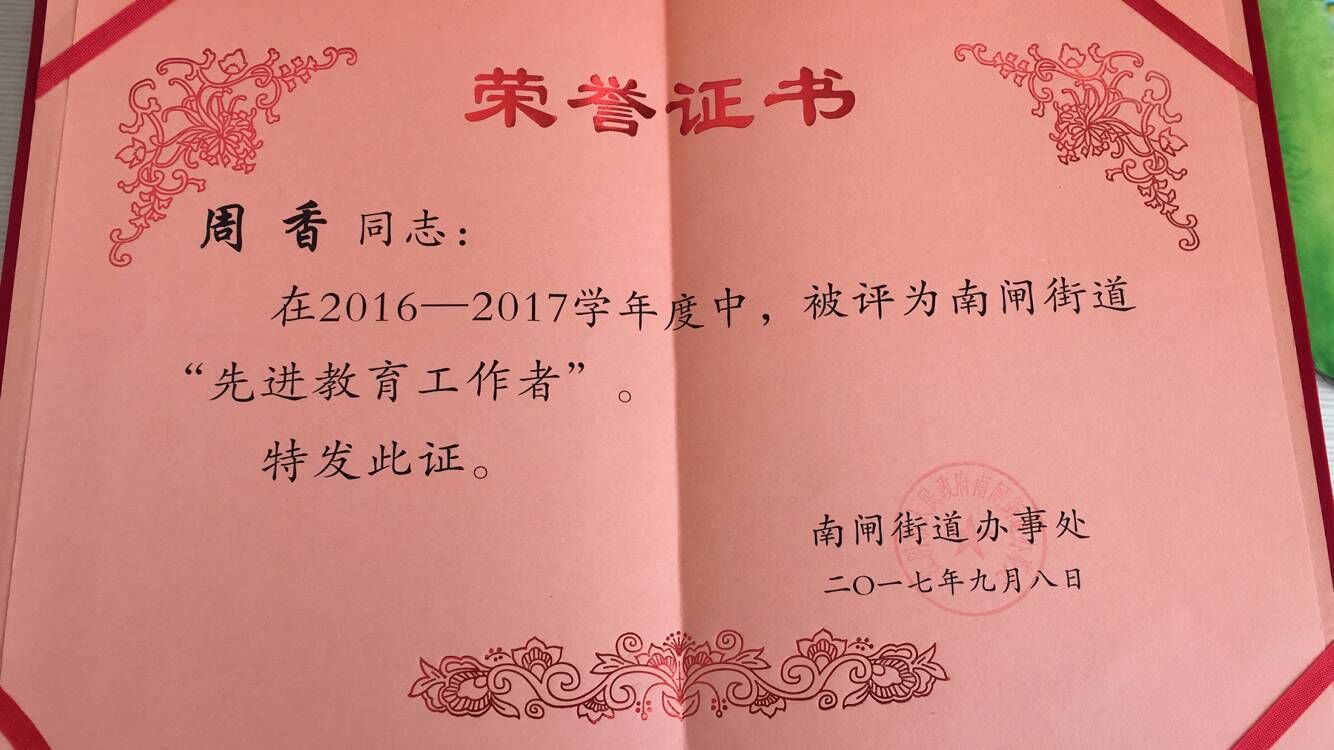 荣誉证书
周 香 同志：
在2016—2017学年度中，被评为南闸街道
“先进教育工作者”。
特发此证。
南闸街道办事处
二〇一七年九月八日